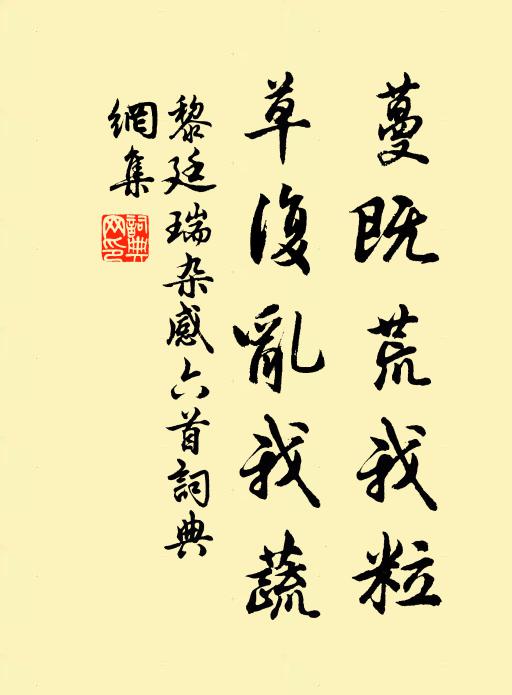 蔓既荒我粒
草復亂我蔬
黎廷瑞杂感六首詞典
網集
詞典
网印